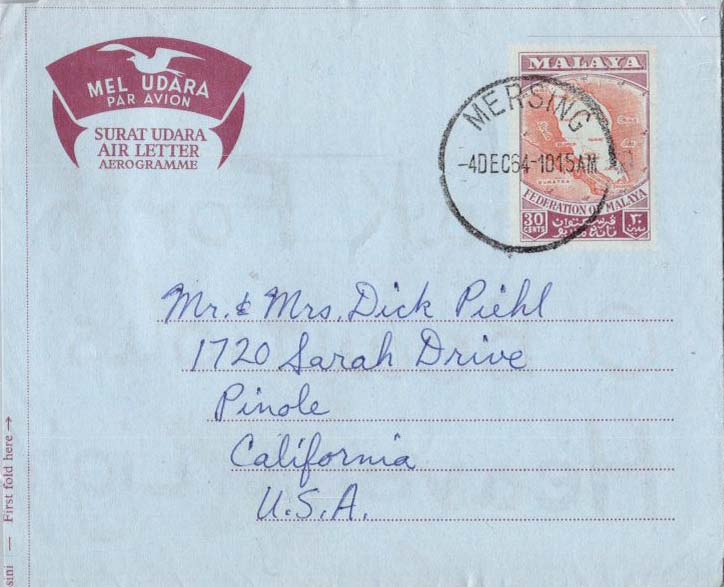 MEL UDARA
PAR AVION
SURAT UDARA
AIR LETTER
AEROGRAMME
MALAYA
MERSING
-4DEC64-1015AM
SUMATRA
FEDERATION OF MALAYA
30
CENTS
٣٠
سين
Mr. & Mrs. Dick Piehl
1720 Sarah Drive
Pinole
California
U.S.A.
sini — First fold here →